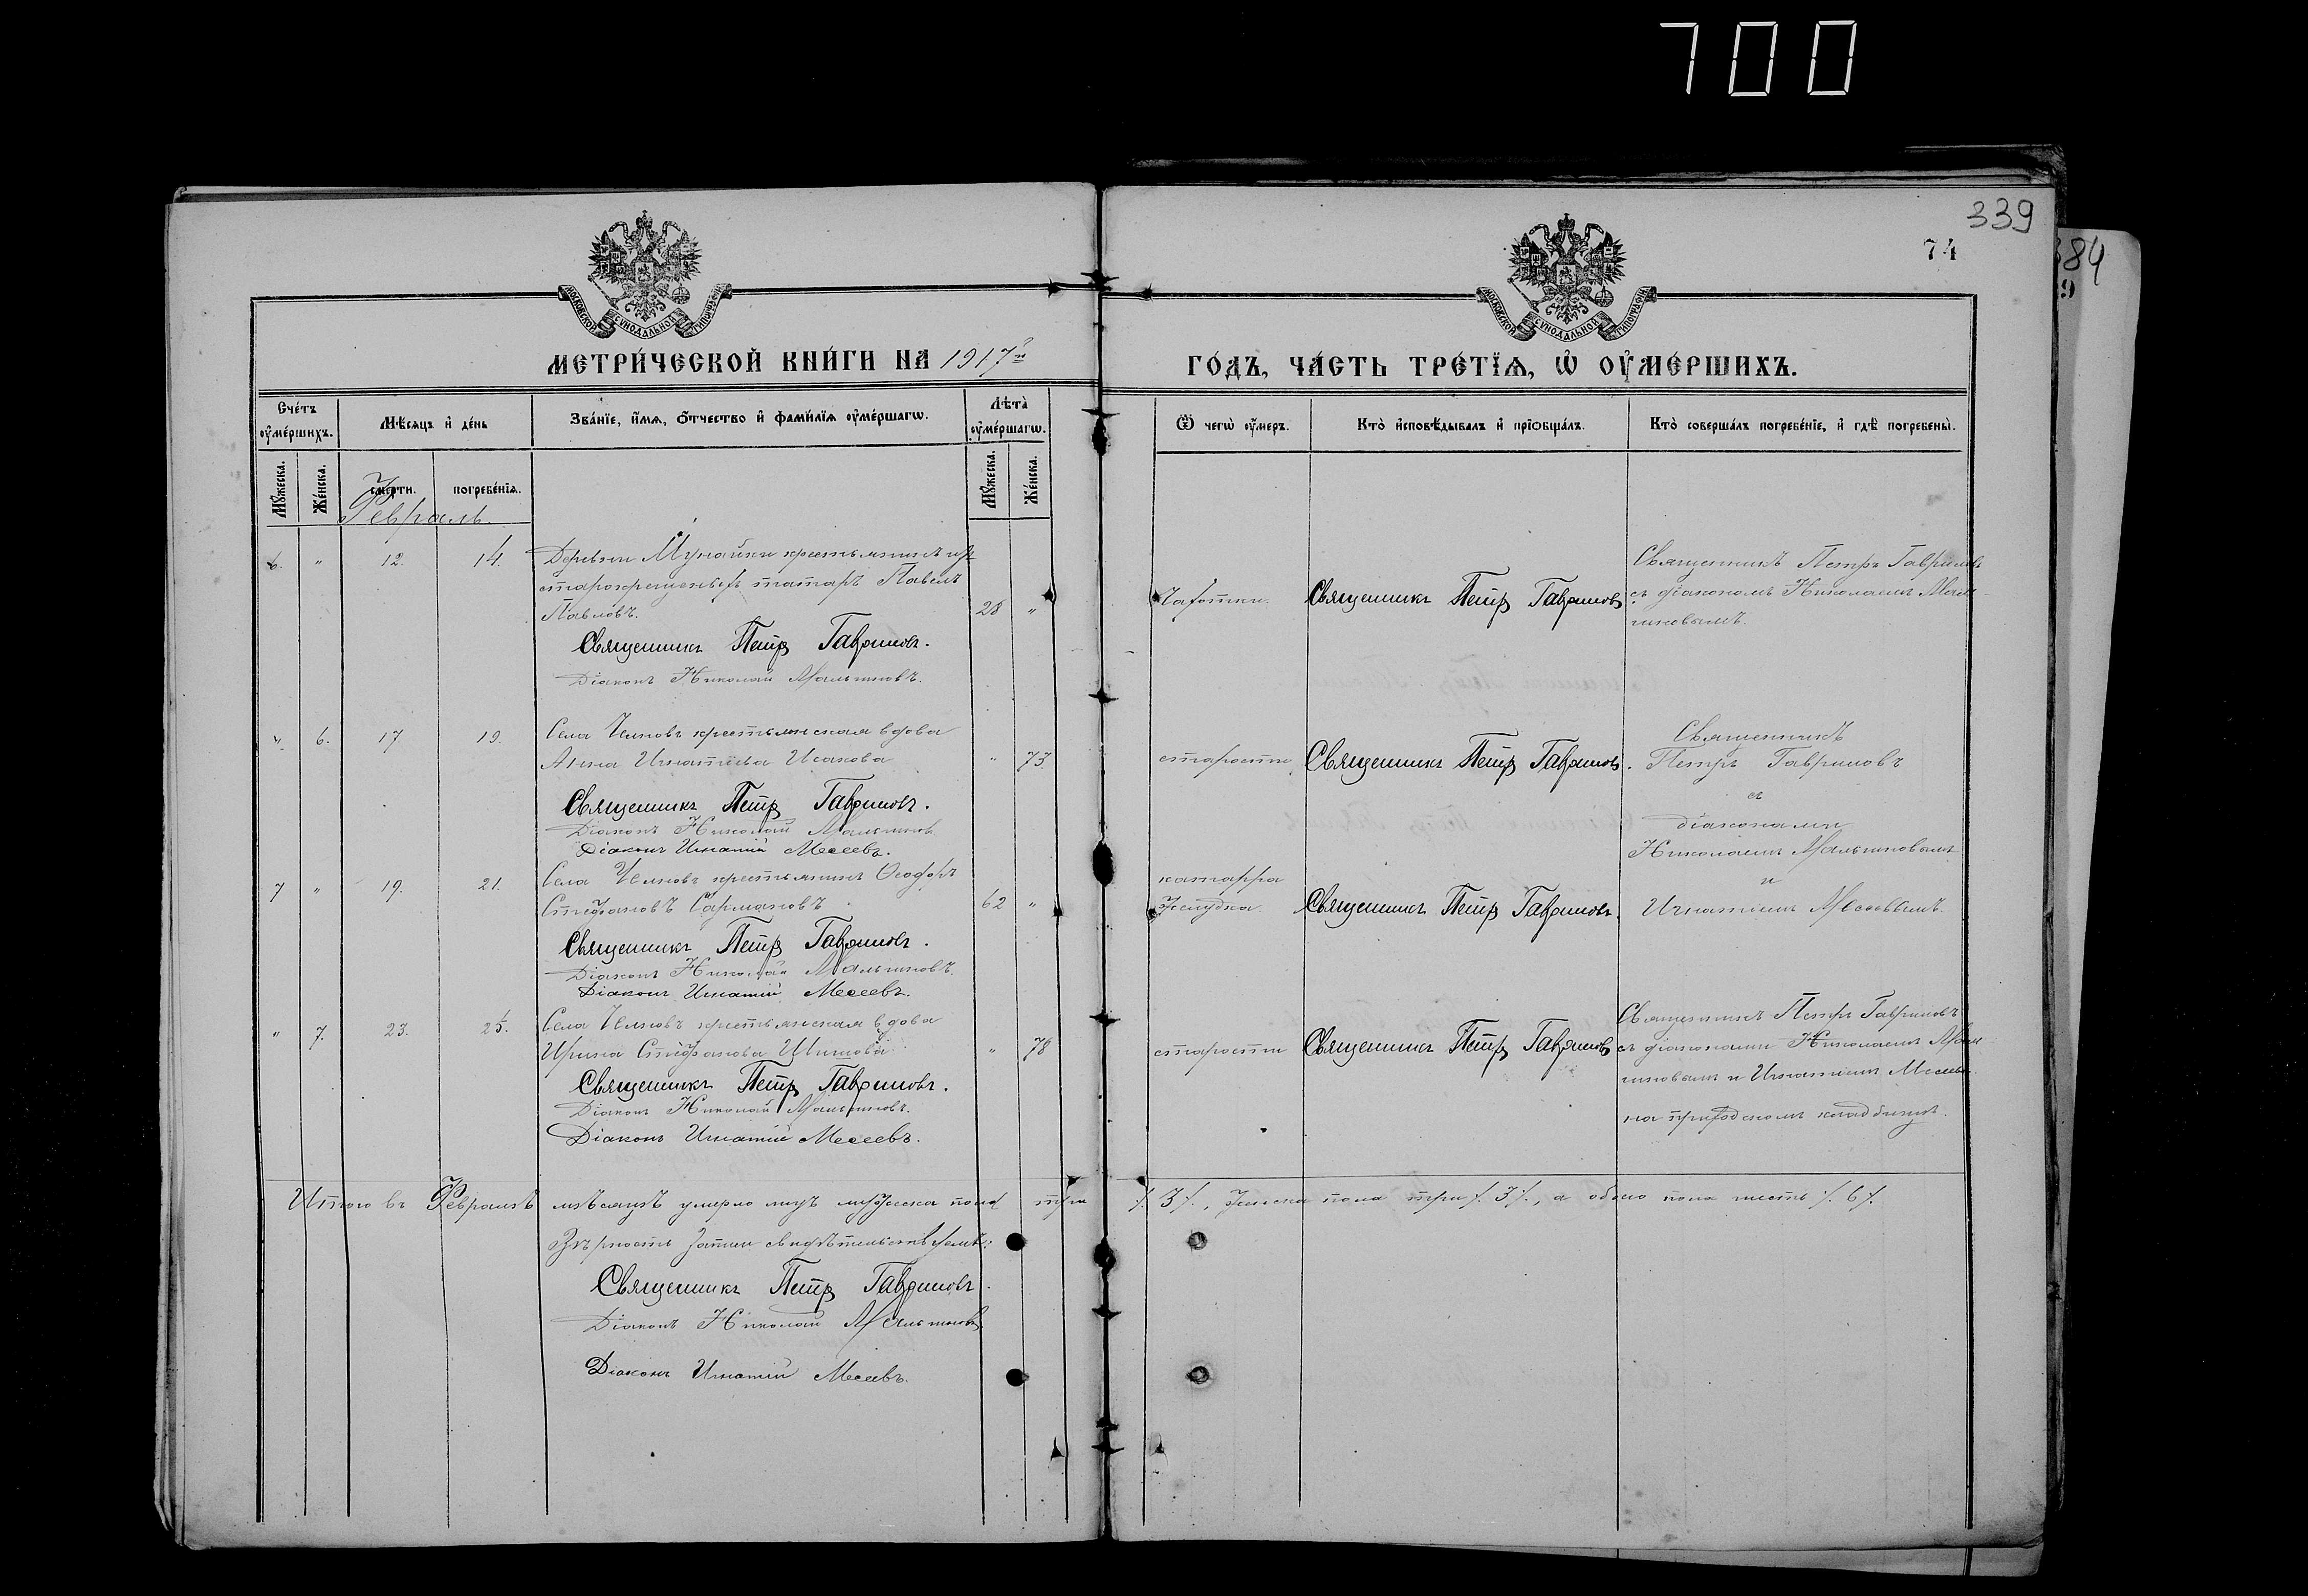 700
339
74
384
9
МОСКОВСКОЙ СУНОДАЛЬНОЙ ТИПОГРАФІИ
МОСКОВСКОЙ СУНОДАЛЬНОЙ ТИПОГРАФІИ
МЕТРИ́ЧЕСКОЙ КНИ́ГИ НА 1917 го
ГО́ДЪ, ЧА́СТЬ ТРЕ́ТЇѦ, Ѡ҆ ОУ҆МЕ́РШИХЪ.
Сче́тъ оу҆ме́ршихъ.
Мѣ́сяцъ и҆ де́нь
Зва́нїе, и҆́мѧ, ѻ҆́тчество и҆ фами́лїѧ оу҆ме́ршагѡ.
Лѣ́та оу҆ме́ршагѡ.
Ѿ чегѡ̀ оу҆́меръ.
Кто̀ и҆сповѣ́дывалъ и҆ прїѻбща́лъ.
Кто̀ соверша́лъ погребе́нїе, и҆ гдѣ̀ погребены̀.
Мꙋ́жеска.
Же́нска.
сме́рти.
погребе́нїѧ.
Мꙋ́жеска.
Же́нска.
Февраль.
6. " 12. 14. Деревни Мунайки крестьянинъ изъ
старокрещеныхъ татаръ Павелъ
Павловъ. 28 "
Священникъ Петръ Гавриловъ.
Діаконъ Николай Мальчиковъ.
Чахотки. Священникъ Петръ Гавриловъ
Священникъ Петръ Гавриловъ
съ діакономъ Николаемъ Маль
чиковымъ.
" 6. 17 19. Села крестьянская вдова
Анна Игнатіева Исакова " 73
Священникъ Петръ Гавриловъ.
Діаконъ Николай Мальчиковъ
Діаконъ Игнатій Мосеевъ.
старости Священникъ Петръ Гавриловъ.
Священникъ
Петръ Гавриловъ
съ
діаконами
Николаемъ Мальчиковымъ
и
Игнатіемъ Мосеевымъ.
7 " 19. 21. Села крестьянинъ Ѳеодоръ
Стефановъ Сармановъ 62 "
Священникъ Петръ Гавриловъ.
Діаконъ Николай Мальчиковъ.
Діаконъ Игнатій Мосеевъ.
катарра
желудка. Священникъ Петръ Гавриловъ.
" 7. 23. 25. Села крестьянская вдова
Ирина Стефанова " 78
Священникъ Петръ Гавриловъ.
Діаконъ Николай Мальчиковъ.
Діаконъ Игнатій Мосеевъ.
старости Священникъ Петръ Гавриловъ
Священникъ Петръ Гавриловъ
съ діаконами Николаемъ Маль
чиковымъ и Игнатіемъ Мосеевы
на приходскомъ кладбищѣ.
Итого въ Февралѣ мѣсяцѣ умерло лицъ мужеска пола три /. 3 /., женска пола три /. 3 /., а обоего пола шесть /. 6 /.
Вѣрность записи свидѣтельствуемъ:
Священникъ Петръ Гавриловъ.
Діаконъ Николай Мальчиковъ
Діаконъ Игнатій Мосеевъ.